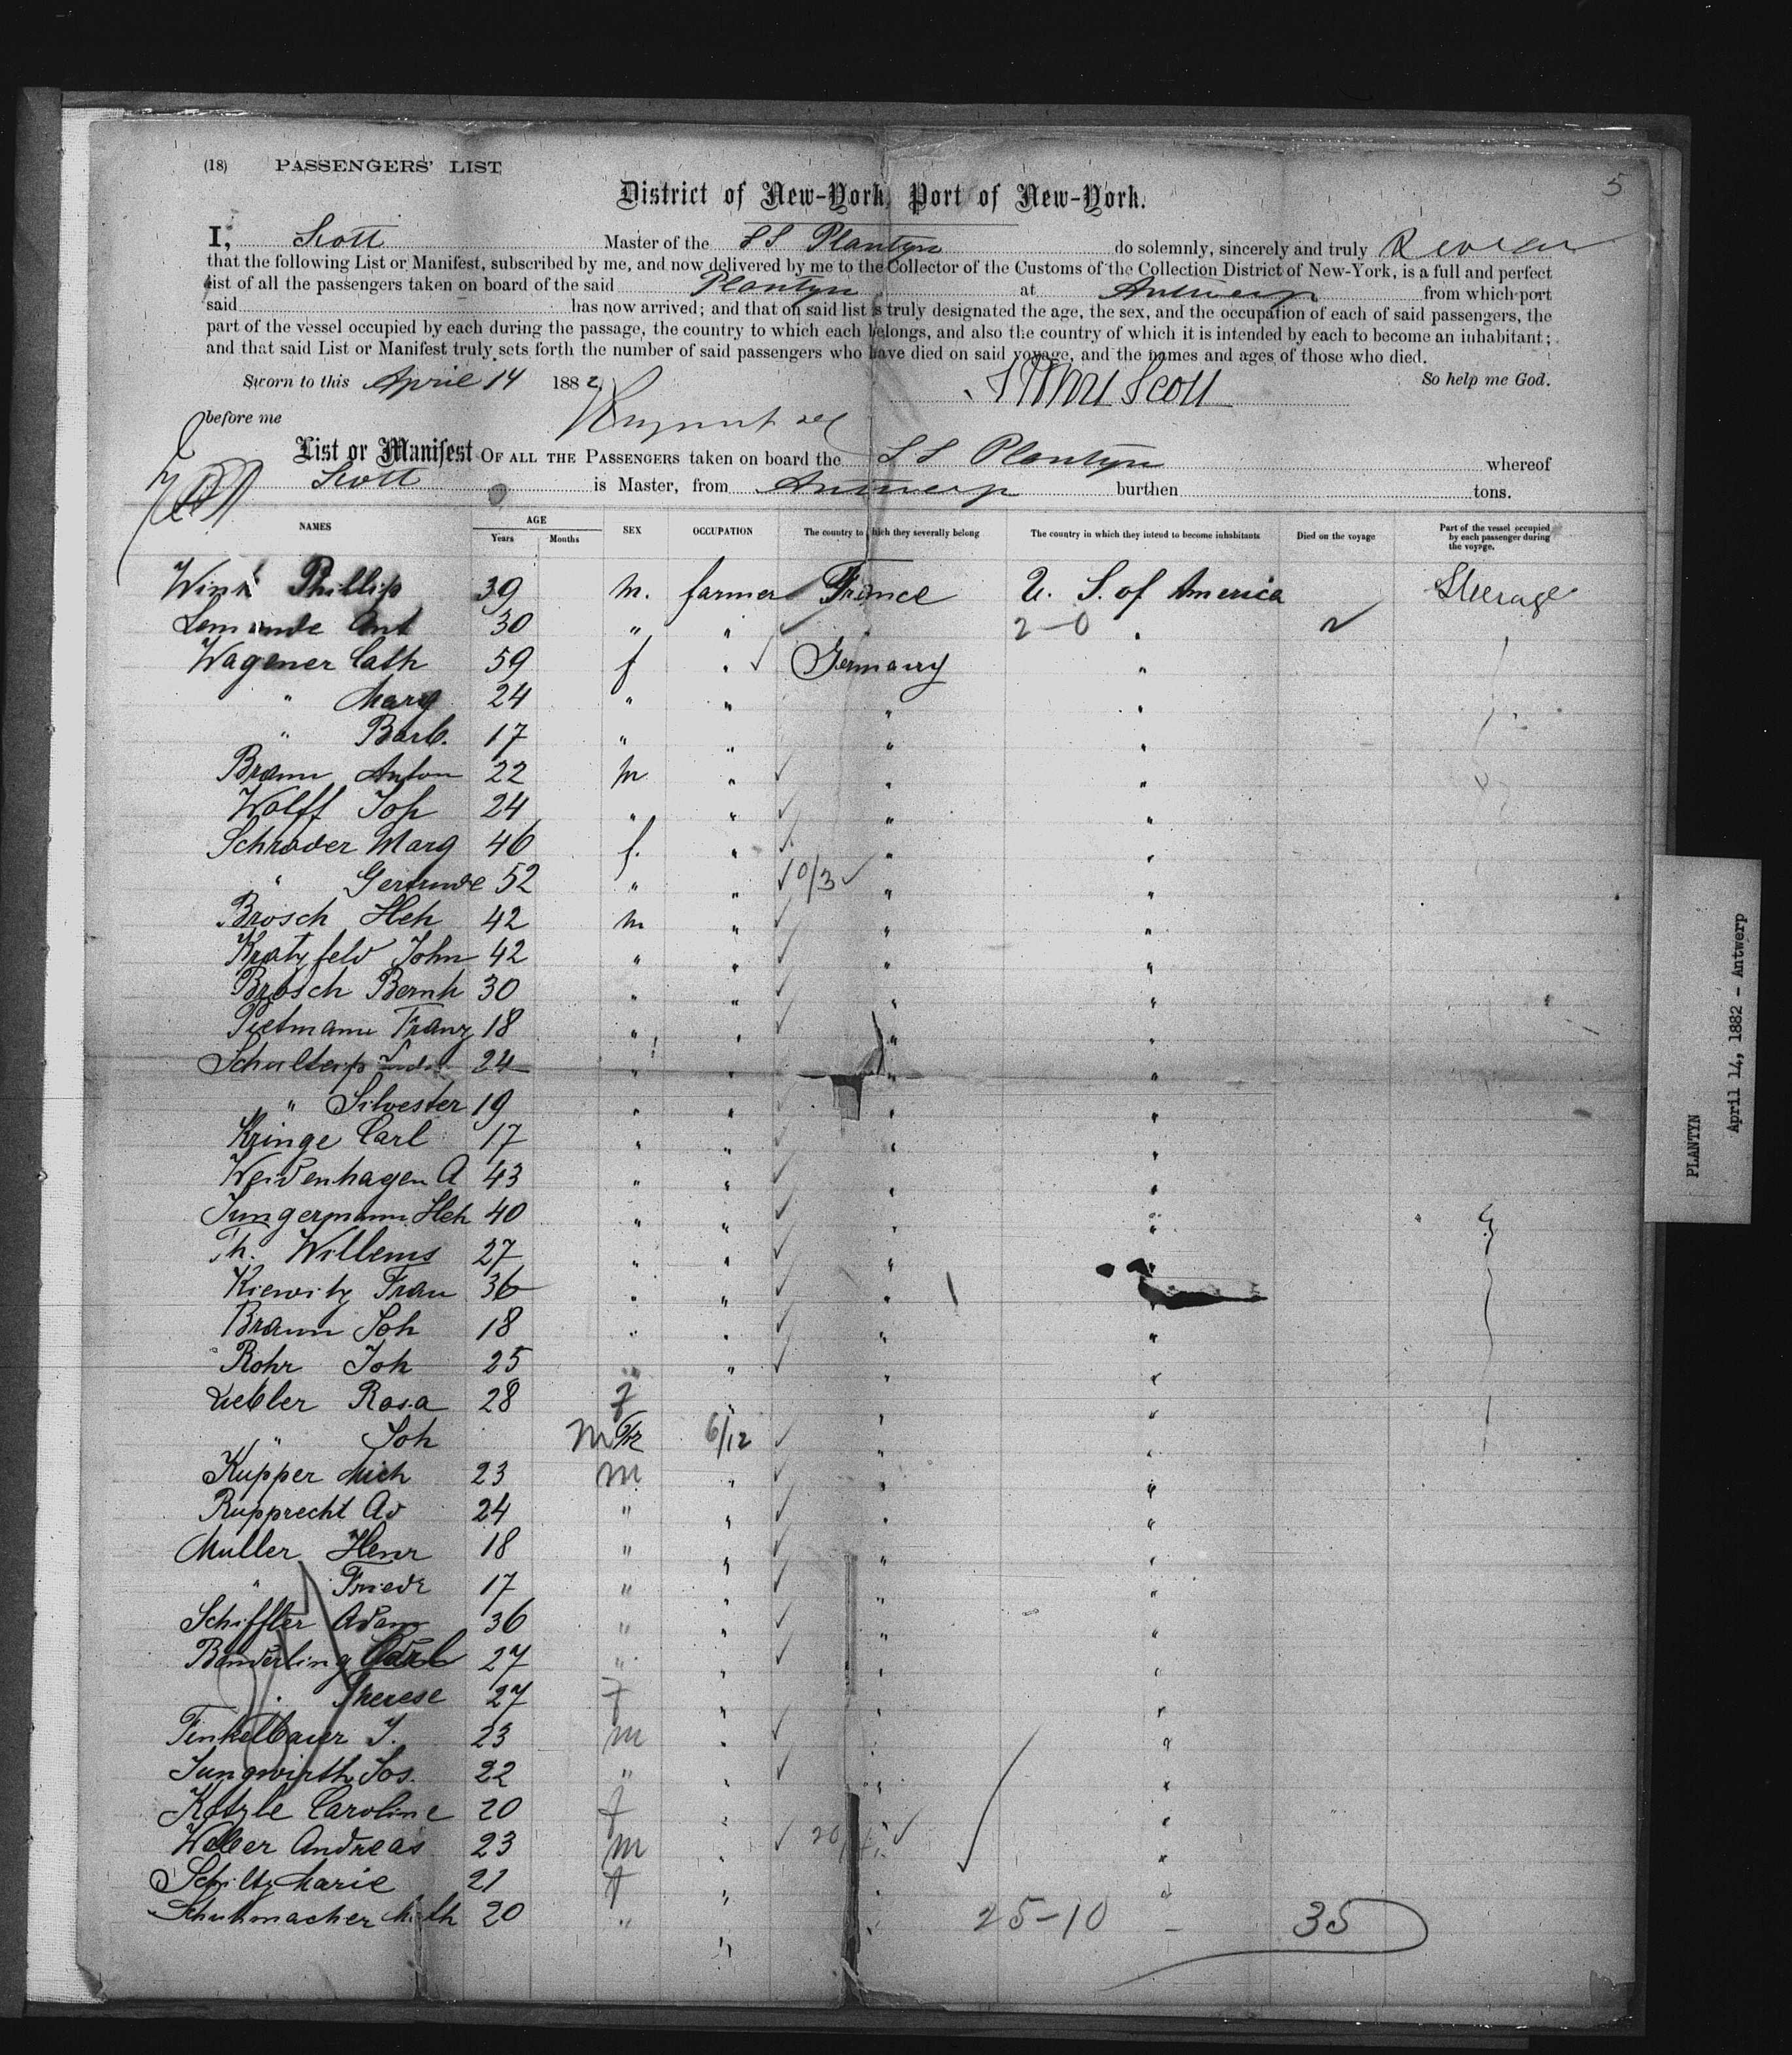 5
(18) PASSENGERS' LIST
District of New-York, Port of New-York.
I, Scott Master of the SS Plantyn do solemnly, sincerely and truly
that the following List or Manifest, subscribed by me, and now delivered by me to the Collector of the Customs of the Collection District of New-York, is a full and perfect
list of all the passengers taken on board of the said Plantyn at Antwerp from which port
said has now arrived; and that on said list is truly designated the age, the sex, and the occupation of each of said passengers, the
part of the vessel occupied by each during the passage, the country to which each belongs, and also the country of which it is intended by each to become an inhabitant;
and that said List or Manifest truly sets forth the number of said passengers who have died on said voyage, and the names and ages of those who died.
Sworn to this April 14 1882 Scott So help me God.
before me
List or Manifest OF ALL THE PASSENGERS taken on board the SS Plantyn whereof
Scott is Master, from Antwerp burthen tons.
NAMES AGE Years Months SEX OCCUPATION The country to which they severally belong The country in which they intend to become inhabitants Died on the voyage Part of the vessel occupied by each passenger during the voyage.
Wink Phillip 39 m. farmer France U. S. of America Steerage
Ant 30 " " 2-0 "
Wagener Cath 59 f " Germany "
" Marg 24 " " " "
" Barb. 17 " " " "
Braun Anton 22 m " " "
Wolff Joh 24 " " " "
Schrader Marg 46 f. " " "
" Gertrude 52 " " 0/3 " "
Brosch Hch 42 m " " "
Kratzfeld John 42 " " " "
Brosch Bernh 30 " " " "
Pietmann Franz 18 " " " "
24 " " " "
" Silvester 19 " " " "
Kringe Carl 17 " " " "
Weidenhagen A 43 " " " "
Jungermann Hch 40 " " " "
Th. Willems 27 " " " "
Kiewitz Frau 36 " " " "
Braun Joh 18 " " " "
Rohr Joh 25 " " " "
Liebler Rosa 28 f " " "
" Joh m 6/12 " "
Kupper Mich 23 m " " "
Rupprecht Ad 24 " " " "
Muller Henr 18 " " " "
" Friedr 17 " " " "
Schiffler Adam 36 " " " "
Benderling Carl 27 " " " "
" Therese 27 f " " "
Finkelbauer J. 23 m " " "
Jungwirth Jos. 22 " " " "
Kotzle Caroline 20 f " " "
Weber Andreas 23 m " " "
Schiltz Marie 21 f " " "
Schuhmacher 20 " " "
25-10 - 35
PLANTYN
April 14, 1882 - Antwerp